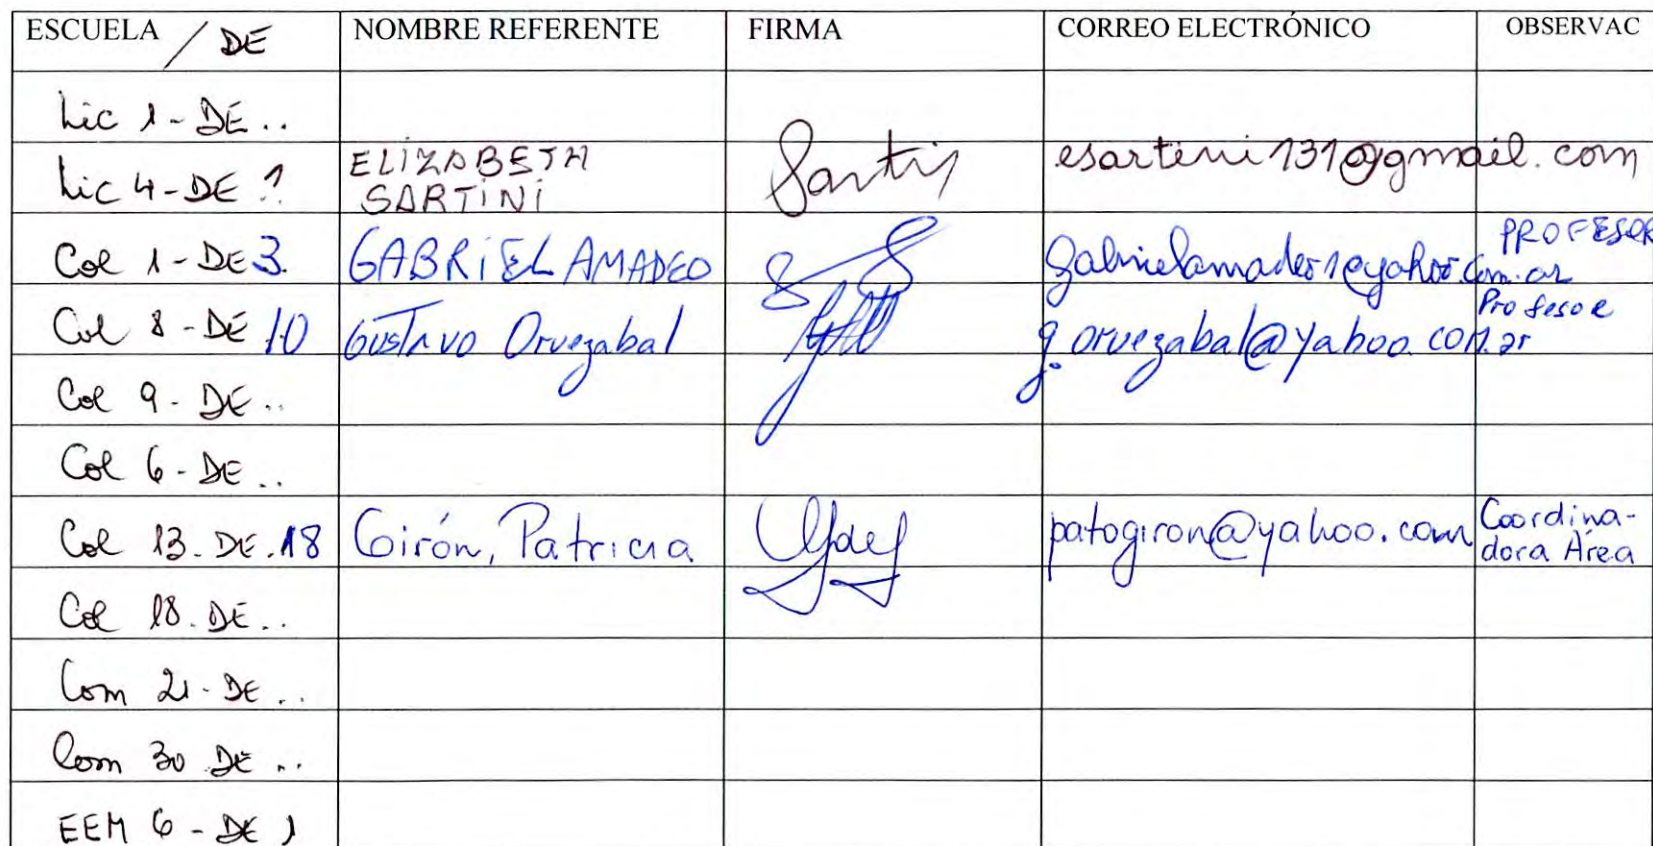 ESCUELA / DE NOMBRE REFERENTE FIRMA CORREO ELECTRÓNICO OBSERVAC
Lic 1 - DE ..
Lic 4 - DE ? ELIZABETH SARTINI esartini131@gmail.com
Col 1 - DE 3. GABRIEL AMADEO gabrielamadeo1@yahoo.com.ar PROFESOR
Col 8 - DE 10 Gustavo Oruezabal g.oruezabal@yahoo.com.ar Profesor
Col 9 - DE ..
Col 6 - DE ..
Col 13. DE. 18 Girón, Patricia patogiron@yahoo.com Coordina-
dora Área
Col 18. DE ..
Com 21 - DE ..
Com 30 DE ..
EEM 6 - DE 1